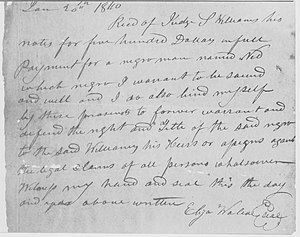 Jan 20th 1840
Recd of Judge S Williams his
notes for five hundred Dollars in full
Payment for a negro man named Ned
which negro I warant to be sound
and well and I do also bind myself
by these presents to forever warrant and
defend the right and Title of the said negro
to the said Williams his Heirs or assigns against
the legal Claims of all persons whatsoever
Witness my hand and seal this the day
and year above written
Eliza Wallace Seal